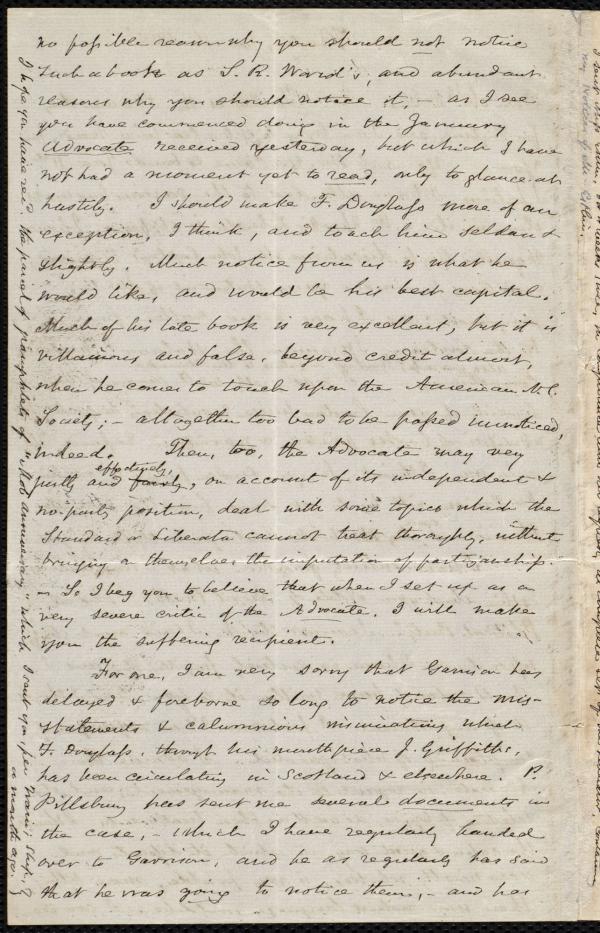 no possible reason why you should not notice
such a book as S. R. Ward's, and abundant
reasons why you should notice it, – as I see
you have commenced doing in the January
Advocate received yesterday, but which I have
not had a moment yet to read, only to glance at
hastily. I should make F. Douglass more of an
exception, I think, and touch him seldom &
slightly. Much notice from us is what he
would like, and would be his best capital.
Much of his late book is very excellent, but it is
villainous and false, beyond credit almost,
when he comes to touch upon the American A.S.
Society; – altogether too bad to be passed unnoticed,
indeed. Then, too, the Advocate may very
effectively,
justly and fairly, on account of its independent &
no-party position, deal with some topics which the
Standard or Liberator cannot treat thoroughly, without
bringing on themselves the imputation of partizanship.
– So I beg you to believe that when I set up as a
very severe critic of the Advocate, I will make
you the suffering recipient.
For one, I am very sorry that Garrison has
delayed & foreborne so long to notice the mis-
statements & calumnious insinuations which
F. Douglass, through his mouthpiece J. Griffiths,
has been circulating in Scotland & elsewhere. P.
Pillsbury has sent me several documents in
the case, – which I have regularly handed
over to Garrison, and he as regularly has said
that he was going to notice them, – and has
I hope you have rec'd. the parcel of pamphlets of "Mob anniversary" which I sent you per Train: Ship,
a month ago.